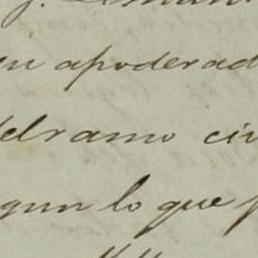 su apoderad
del ramo civ
gun lo que p